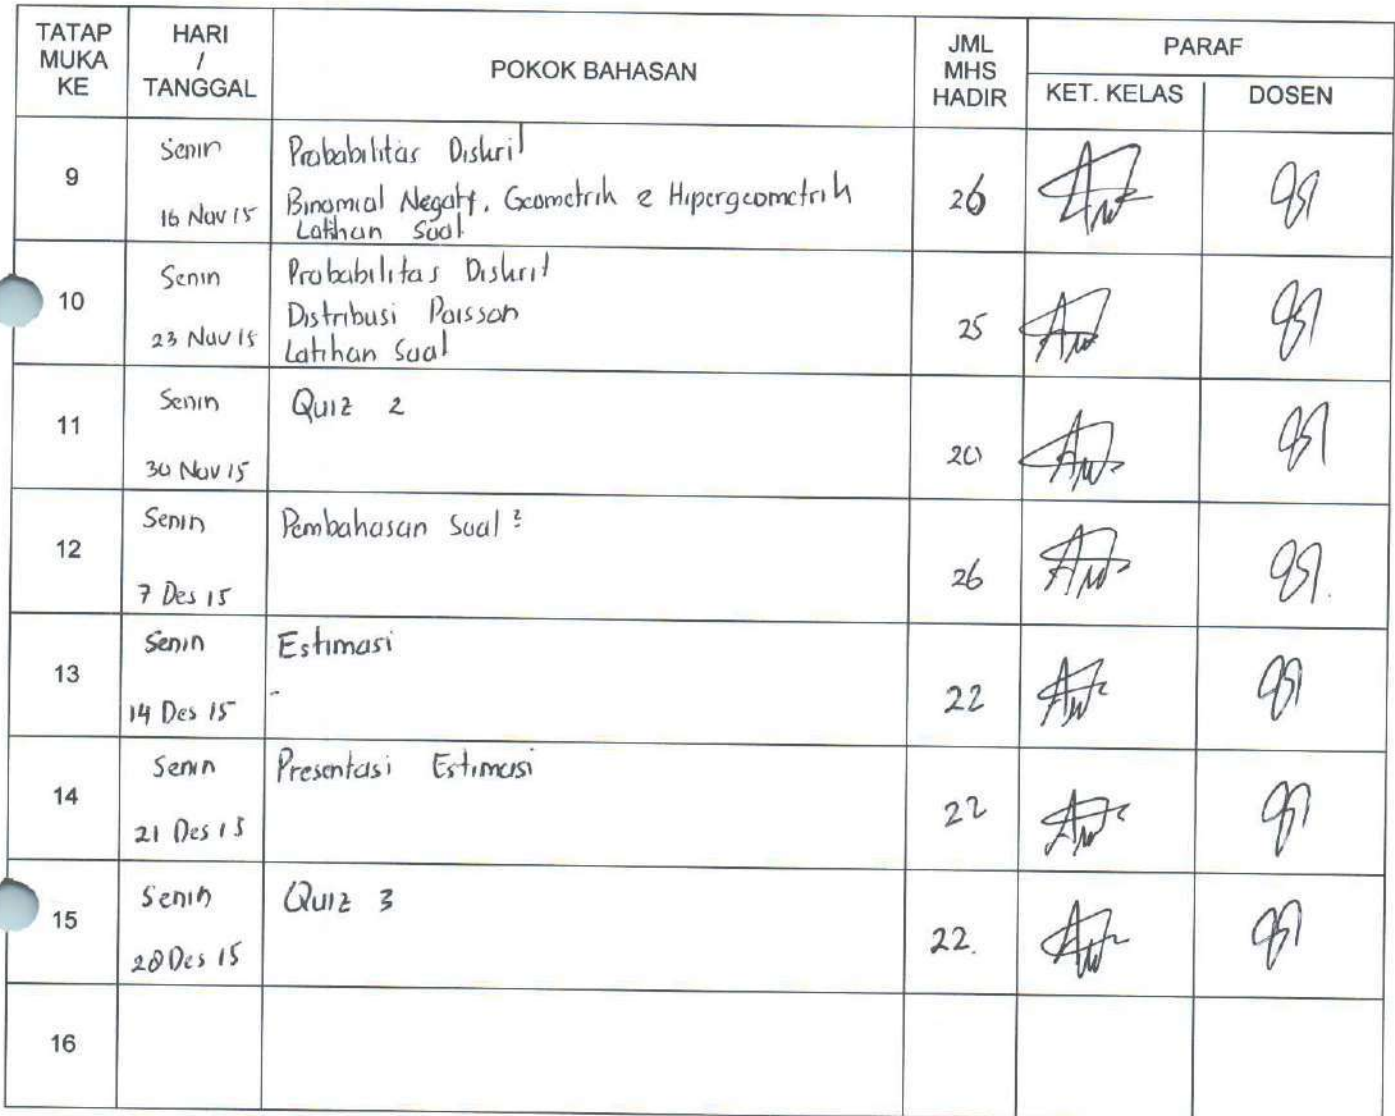 TATAP MUKA KE
HARI / TANGGAL
POKOK BAHASAN
JML MHS HADIR
PARAF
KET. KELAS
DOSEN
9
Senin
16 Nov 15
Probabilitas Diskrit
Binomial Negatif, Geometrik & Hipergeometrik
Latihan Soal
26
10
Senin
23 Nov 15
Probabilitas Diskrit
Distribusi Poisson
Latihan Soal
25
11
Senin
30 Nov 15
Quiz 2
20
12
Senin
7 Des 15
Pembahasan Soal²
26
13
Senin
14 Des 15
Estimasi
-
22
14
Senin
21 Des 15
Presentasi Estimasi
22
15
Senin
28 Des 15
Quiz 3
22.
16